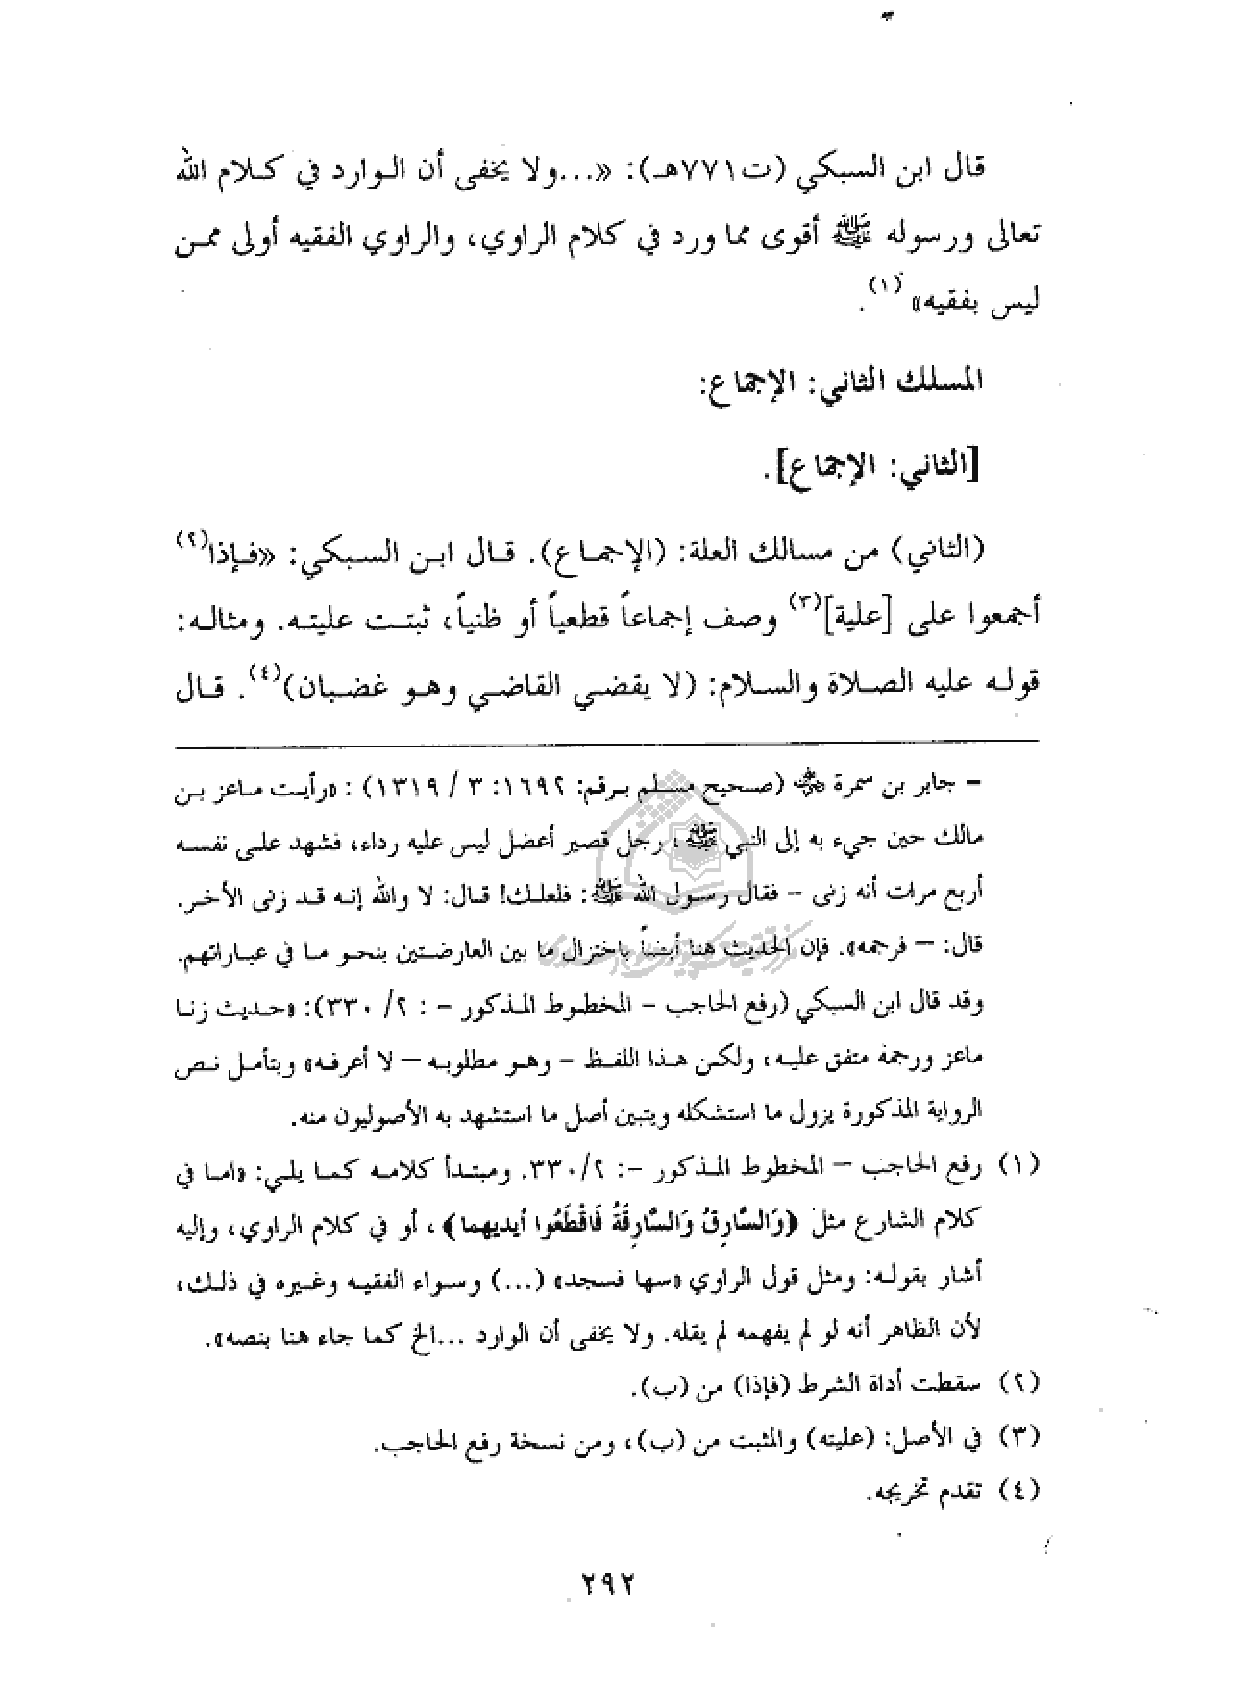 قال ابن السبكي (ت٧٧١هـ): «...ولا يخفى أن الوارد في كلام الله
تعالى ورسوله ﷺ أقوى مما ورد في كلام الراوي، والراوي الفقيه أولى ممن
ليس بفقيه» (١).
المسلك الثاني: الإجماع:
[الثاني: الإجماع].
(الثاني) من مسالك العلة: (الإجماع). قال ابن السبكي: «فإذا(٢)
أجمعوا على [علية](٣) وصف إجماعاً قطعياً أو ظنياً، ثبتت عليته. ومثاله:
قوله عليه الصلاة والسلام: (لا يقضي القاضي وهو غضبان)(٤). قال
– جابر بن سمرة ﷺ (صحيح مسلم برقم: ١٦٩٢: ٣ / ١٣١٩) : «رأيت ماعز بن
مالك حين جيء به إلى النبي ﷺ، رجل قصير أعضل ليس عليه رداء، فشهد على نفسه
أربع مرات أنه زنى – فقال رسول الله ﷺ: فلعلك! قال: لا والله إنه قد زنى الأخر.
قال: – فرجمه». فإن الحديث هنا أيضاً باختزال ما بين العارضتين بنحو ما في عباراتهم.
وقد قال ابن السبكي (رفع الحاجب – المخطوط المذكور – : ٢/ ٣٣٠): «حديث زنا
ماعز ورجمة متفق عليه، ولكن هذا اللفظ – وهو مطلوبه – لا أعرفه» وبتأمل نص
الرواية المذكورة يزول ما استشكله ويتبين أصل ما استشهد به الأصوليون منه.
(١) رفع الحاجب – المخطوط المذكور –: ٣٣٠/٢. ومبتدأ كلامه كما يلي: «اما في
كلام الشارع مثل ﴿وَالسَّارِقُ وَالسَّارِقَةُ فَاقْطَعُوا أيديهما﴾، أو في كلام الراوي، وإليه
أشار بقوله: ومثل قول الراوي «سها فسجد» (...) وسواء الفقيه وغيره في ذلك،
لأن الظاهر أنه لو لم يفهمه لم يقله. ولا يخفى أن الوارد ...الخ كما جاء هنا بنصه».
(٢) سقطت أداة الشرط (فإذا) من (ب).
(٣) في الأصل: (عليته) والمثبت من (ب)، ومن نسخة رفع الحاجب.
(٤) تقدم تخريجه.
٢٩٢